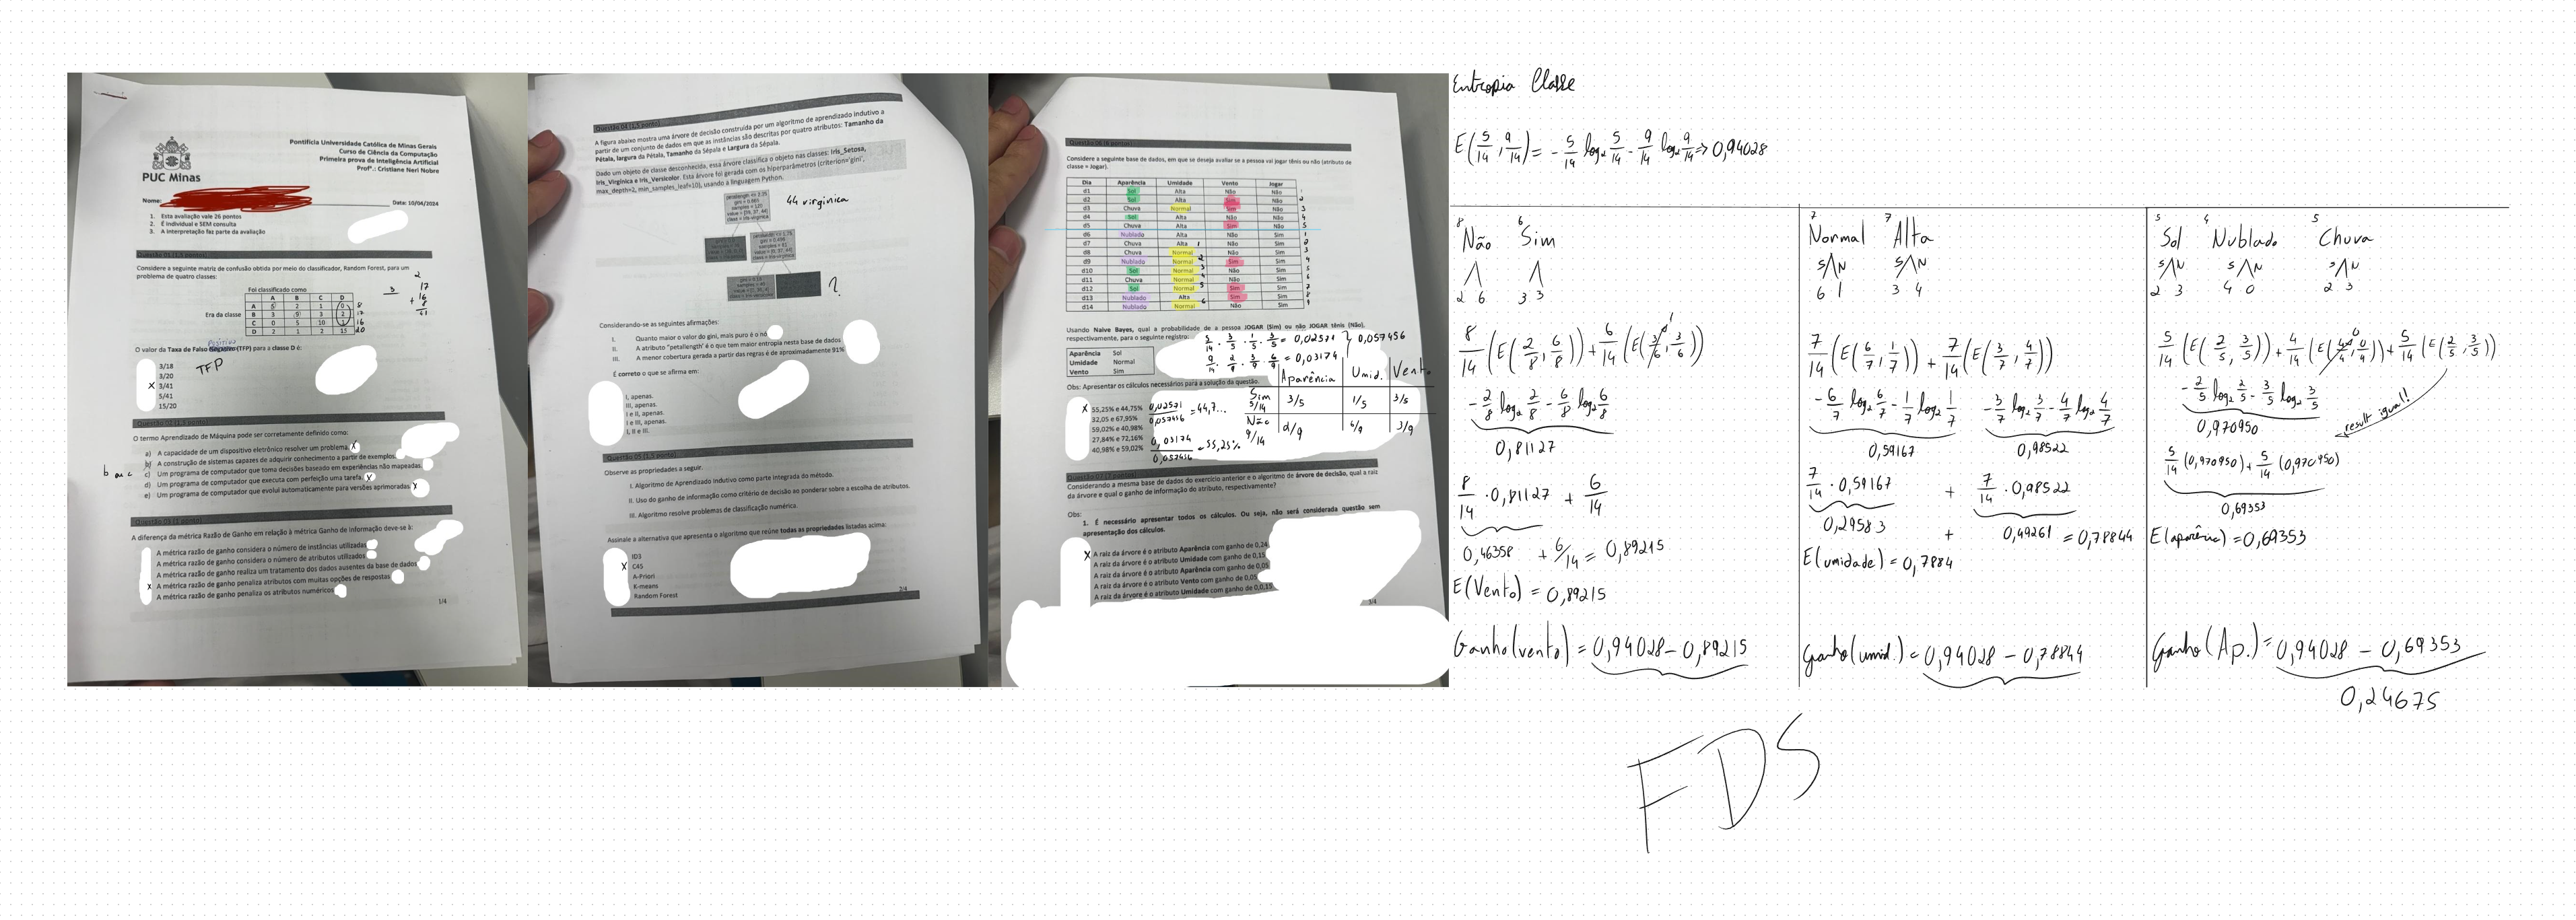 Pontifícia Universidade Católica de Minas Gerais
Curso de Ciência da Computação
Primeira prova de Inteligência Artificial
Profª.: Cristiane Neri Nobre
PUC Minas
Nome:
Data: 10/04/2024
1. Esta avaliação vale 26 pontos
2. É individual e SEM consulta
3. A interpretação faz parte da avaliação
Considere a seguinte matriz de confusão obtida por meio do classificador, Random Forest, para um
problema de quatro classes:
Foi classificado como
A B C D
Era da classe
A 5 2 1 0 8
B 3 9 3 2 17
C 0 5 10 1 16
D 2 1 2 15 20
3
2
17
16
+ 8
41
O valor da Taxa de Falso (TFP) para a classe D é:
Positivo
TFP
3/18
3/20
X 3/41
5/41
15/20
O termo Aprendizado de Máquina pode ser corretamente definido como:
a) A capacidade de um dispositivo eletrônico resolver um problema. X
b) A construção de sistemas capazes de adquirir conhecimento a partir de exemplos.
c) Um programa de computador que toma decisões baseado em experiências não mapeadas.
d) Um programa de computador que executa com perfeição uma tarefa. X
e) Um programa de computador que evolui automaticamente para versões aprimoradas X
b ou c
Questão 03 (1 ponto)
A diferença da métrica Razão de Ganho em relação à métrica Ganho de Informação deve-se à:
A métrica razão de ganho considera o número de instâncias utilizadas
A métrica razão de ganho considera o número de atributos utilizados
A métrica razão de ganho realiza um tratamento dos dados ausentes da base de dados
X A métrica razão de ganho penaliza atributos com muitas opções de respostas
A métrica razão de ganho penaliza os atributos numéricos
1/4
A figura abaixo mostra uma árvore de decisão construída por um algoritmo de aprendizado indutivo a
partir de um conjunto de dados em que as instâncias são descritas por quatro atributos: Tamanho da
Pétala, largura da Pétala, Tamanho da Sépala e Largura da Sépala.
Dado um objeto de classe desconhecida, essa árvore classifica o objeto nas classes: Iris_Setosa,
Iris_Virginica e Iris_Versicolor. Esta árvore foi gerada com os hiperparâmetros (criterion='gini',
max_depth=2, min_samples_leaf=10), usando a linguagem Python.
44 virginica
?
Considerando-se as seguintes afirmações:
I. Quanto maior o valor do gini, mais puro é o nó
II. A atributo "petallength" é o que tem maior entropia nesta base de dados
III. A menor cobertura gerada a partir das regras é de aproximadamente 91%
É correto o que se afirma em:
I, apenas.
III, apenas.
I e II, apenas.
I e III, apenas.
I, II e III.
Observe as propriedades a seguir.
I. Algoritmo de Aprendizado Indutivo como parte integrada do método.
II. Uso do ganho de informação como critério de decisão ao ponderar sobre a escolha de atributos.
III. Algoritmo resolve problemas de classificação numérica.
Assinale a alternativa que apresenta o algoritmo que reúne todas as propriedades listadas acima:
ID3
X C45
A-Priori
K-means
Random Forest
2/4
Considere a seguinte base de dados, em que se deseja avaliar se a pessoa vai jogar tênis ou não (atributo de
classe = Jogar).
Dia Aparência Umidade Vento Jogar
d1 Sol Alta Não Não 1
d2 Sol Alta Sim Não 2
d3 Chuva Normal Sim Não 3
d4 Sol Alta Não Não 4
d5 Chuva Alta Sim Não 5
d6 Nublado Alta Não Sim 1
d7 Chuva Alta Não Sim 2
d8 Chuva Normal Não Sim 3
d9 Nublado Normal Sim Sim 4
d10 Sol Normal Não Sim 5
d11 Chuva Normal Não Sim 6
d12 Sol Normal Sim Sim 7
d13 Nublado Alta Sim Sim 8
d14 Nublado Normal Não Sim 9
Usando Naive Bayes, qual a probabilidade de a pessoa JOGAR (Sim) ou não JOGAR tênis (Não),
respectivamente, para o seguinte registro:
Aparência Sol
Umidade Normal
Vento Sim
5/14 · 3/5 · 1/5 · 3/5 = 0,02571 } 0,057456
9/14 · 2/9 · 3/9 · 6/9 = 0,03174
Obs: Apresentar os cálculos necessários para a solução da questão.
Aparência Umid. Vento
Sim 5/14 3/5 1/5 3/5
Não 9/14 2/9 6/9 3/9
X 55,25% e 44,75%
32,05 e 67,95%
59,02% e 40,98%
27,84% e 72,16%
40,98% e 59,02%
0,02571/0,057456 = 44,7...
0,03174/0,057456 = 55,25%
Considerando a mesma base de dados do exercício anterior e o algoritmo de árvore de decisão, qual a raiz
da árvore e qual o ganho de informação do atributo, respectivamente?
Obs:
1. É necessário apresentar todos os cálculos. Ou seja, não será considerada questão sem
apresentação dos cálculos.
X A raiz da árvore é o atributo Aparência com ganho de 0,24
A raiz da árvore é o atributo Umidade com ganho de 0,15
A raiz da árvore é o atributo Aparência com ganho de 0,05
A raiz da árvore é o atributo Vento com ganho de 0,05
A raiz da árvore é o atributo Umidade com ganho de 0,0,15
3/4
Entropia Classe
E(5/14, 9/14) = -5/14 log₂ 5/14 - 9/14 log₂ 9/14 => 0,94028
8 6
Não Sim
2 6 3 3
8/14 (E(2/8, 6/8)) + 6/14 (E(3/6, 3/6)) 1
-2/8 log₂ 2/8 - 6/8 log₂ 6/8
0,81127
8/14 · 0,81127 + 6/14
0,46358 + 6/14 = 0,89215
E(Vento) = 0,89215
Ganho(vento) = 0,94028 - 0,89215
7 7
Normal Alta
S N S N
6 1 3 4
7/14 (E(6/7, 1/7)) + 7/14 (E(3/7, 4/7))
-6/7 log₂ 6/7 - 1/7 log₂ 1/7 -3/7 log₂ 3/7 - 4/7 log₂ 4/7
0,59167 0,98522
7/14 · 0,59167 + 7/14 · 0,98522
0,29583 + 0,49261 = 0,78844
E(umidade) = 0,7884
Ganho(umid.) = 0,94028 - 0,78844
5 4 5
Sol Nublado Chuva
S N S N S N
2 3 4 0 2 3
5/14 (E(2/5, 3/5)) + 4/14 (E(4/4, 0/4)) 0 + 5/14 (E(2/5, 3/5))
-2/5 log₂ 2/5 - 3/5 log₂ 3/5
0,970950
result igual!
5/14 (0,970950) + 5/14 (0,970950)
0,69353
E(aparência) = 0,69353
Ganho(Ap.) = 0,94028 - 0,69353
0,24675
FDS